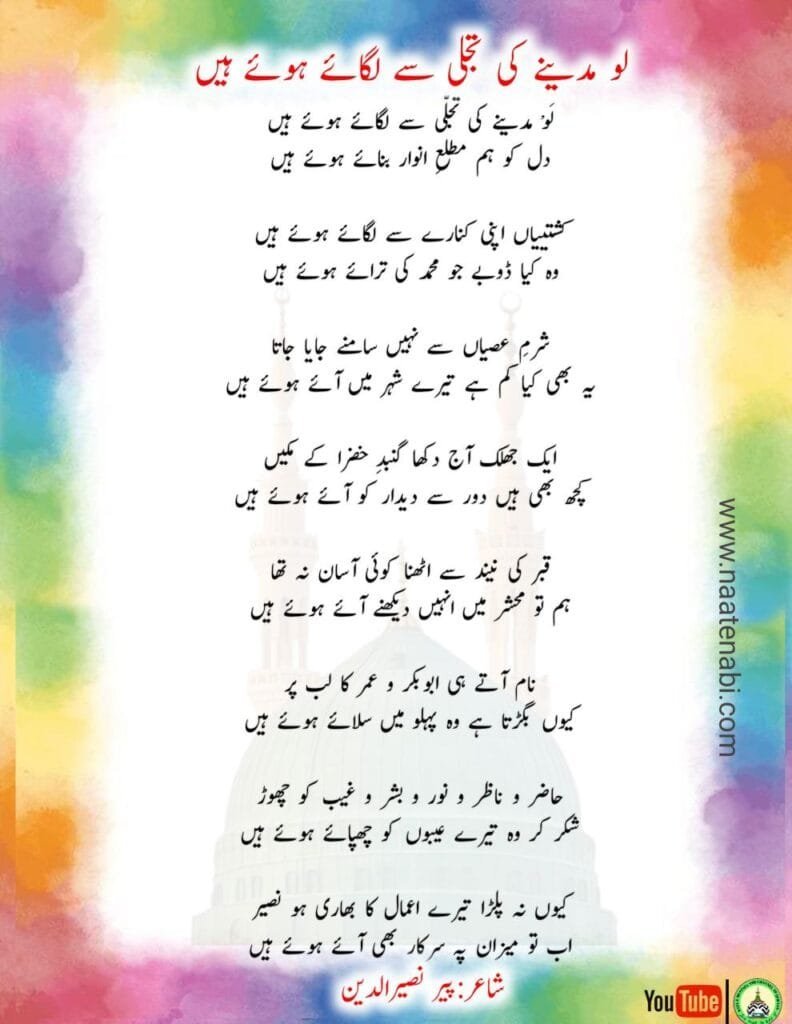 لو مدینے کی تجلی سے لگائے ہوئے ہیں
لَوْ مدینے کی تجلّی سے لگائے ہوئے ہیں
دل کو ہم مطلعِ انوار بنائے ہوئے ہیں
کشتییاں اپنی کنارے سے لگائے ہوئے ہیں
وہ کیا ڈوبے جو محمد کی ترائے ہوئے ہیں
شرمِ عصیاں سے نہیں سامنے جایا جاتا
یہ بھی کیا کم ہے تیرے شہر میں آئے ہوئے ہیں
ایک جھلک آج دکھا گنبدِ خضرا کے مکیں
کچھ بھی ہیں دور سے دیدار کو آئے ہوئے ہیں
قبر کی نیند سے اٹھنا کوئی آسان نہ تھا
ہم تو محشر میں انہیں دیکھنے آئے ہوئے ہیں
نام آتے ہی ابوبکر و عمر کا لب پر
کیوں بگڑتا ہے وہ پہلو میں سلائے ہوئے ہیں
حاضر و ناظر و نور و بشر و غیب کو چھوڑ
شکر کر وہ تیرے عیبوں کو چھپائے ہوئے ہیں
کیوں نہ پلڑا تیرے اعمال کا بھاری ہو نصیر
اب تو میزان پہ سرکار بھی آئے ہوئے ہیں
شاعر: پیر نصیرالدین
www.naatenabi.com
YouTube